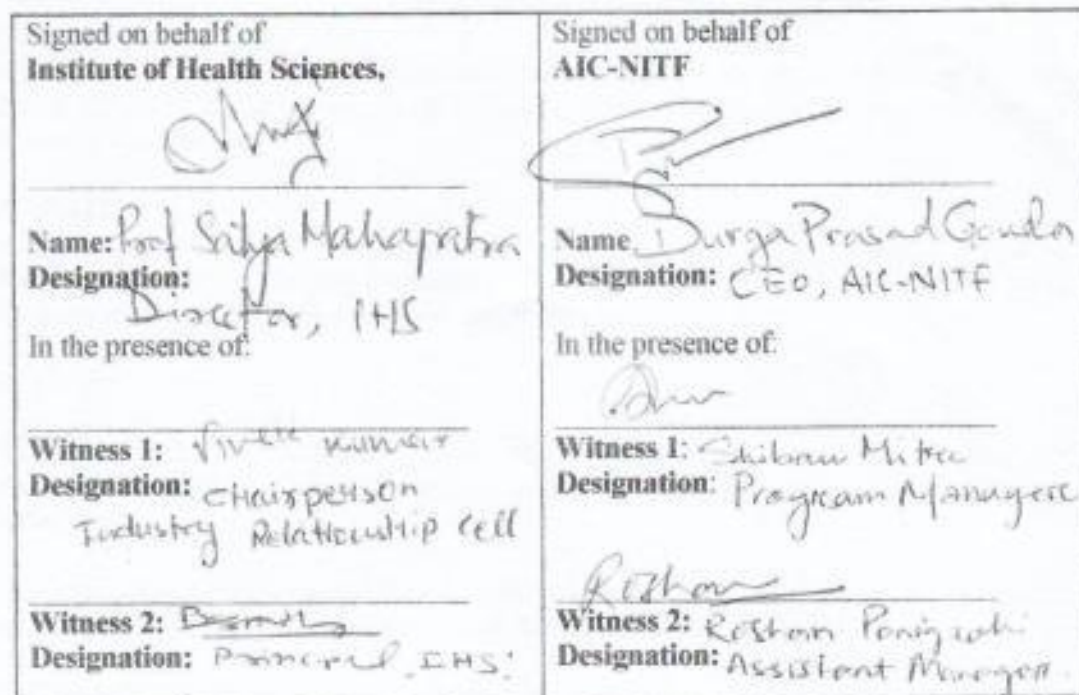 Signed on behalf of
Institute of Health Sciences,
Name: Prof Satya Mahapatra
Designation:
Director, IHS
In the presence of:
Witness 1: Vivek Kumar
Designation: Chairperson
Industry Relationship Cell
Witness 2:
Designation: Principal, IHS
Signed on behalf of
AIC-NITF
Name Durga Prasad Gouda
Designation: CEO, AIC-NITF
In the presence of:
Witness 1: Mitra
Designation: Program Manager
Roshan
Witness 2: Roshan Panigrahi
Designation: Assistant Manager